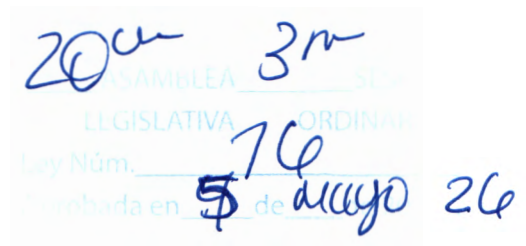 20ma ASAMBLEA 3ra SES
LEGISLATIVA ORDINAR
Ley Núm. 76
Aprobada en 5 de mayo 26